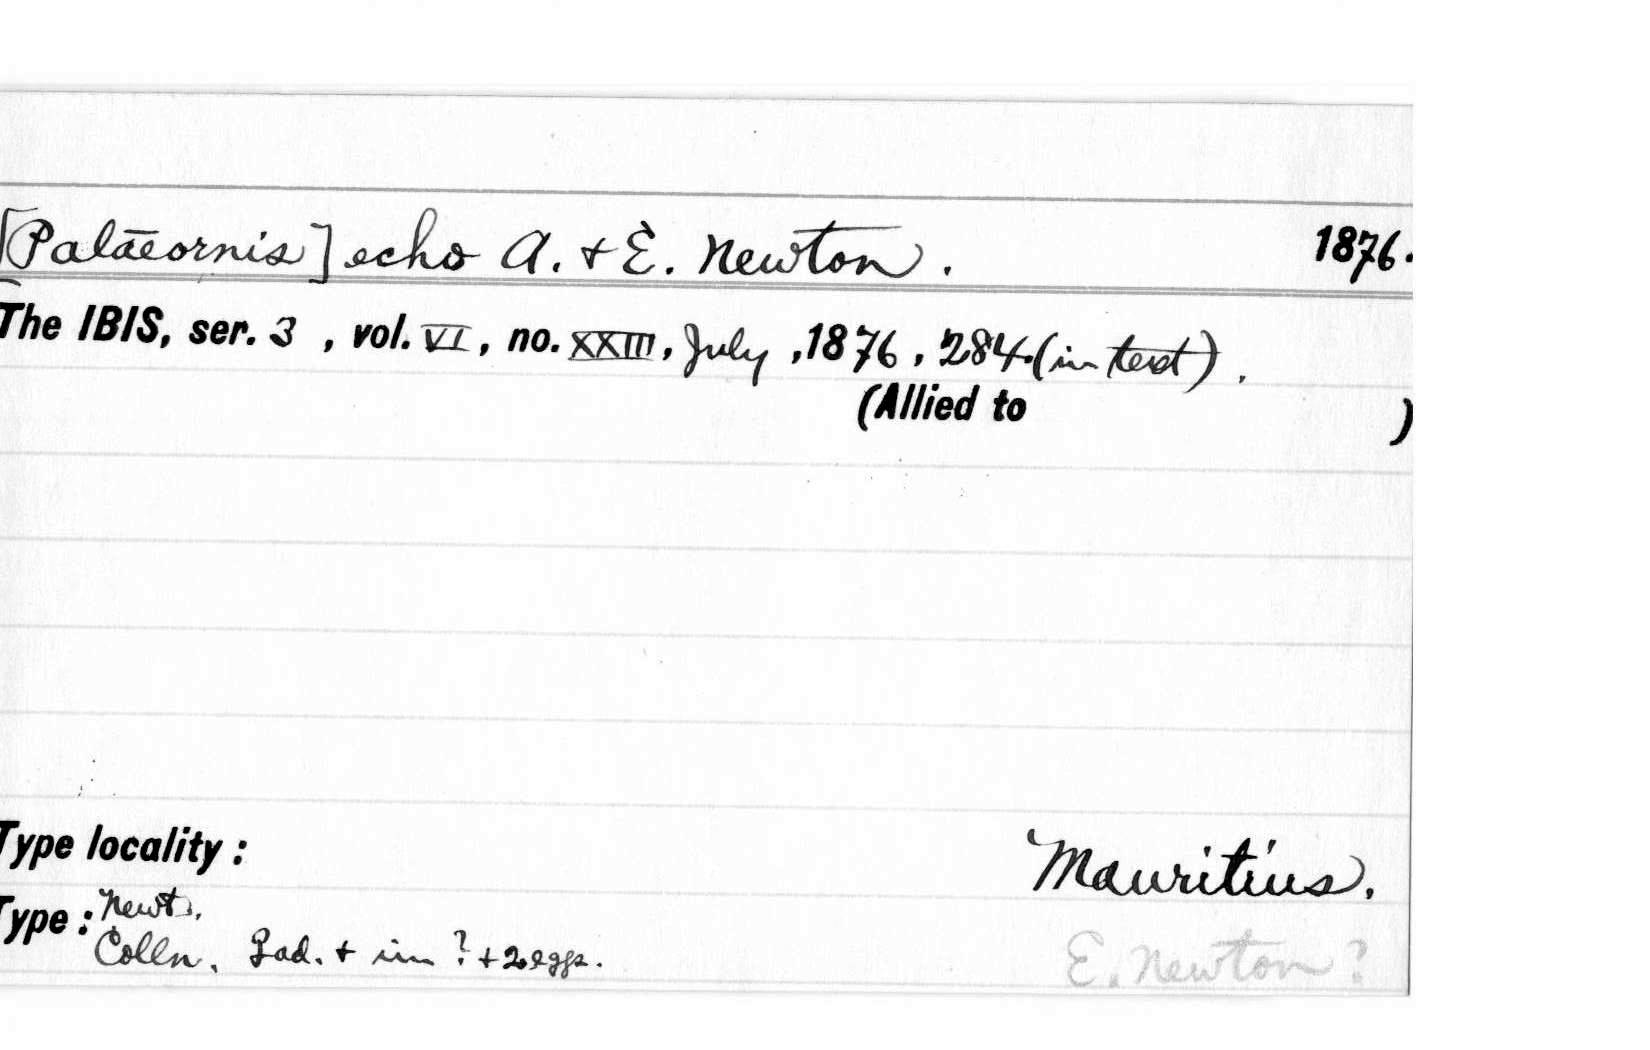 [Palaeornis] echo A. + E. Newton. 1876.
The IBIS, ser. 3 , vol. VI, no. XXIII, July ,1876, 284.(in text).
(Allied to )
Type locality : Mauritius.
Type : Newt.
Colln. ad. + im ? + 2 eggs. E. Newton ?